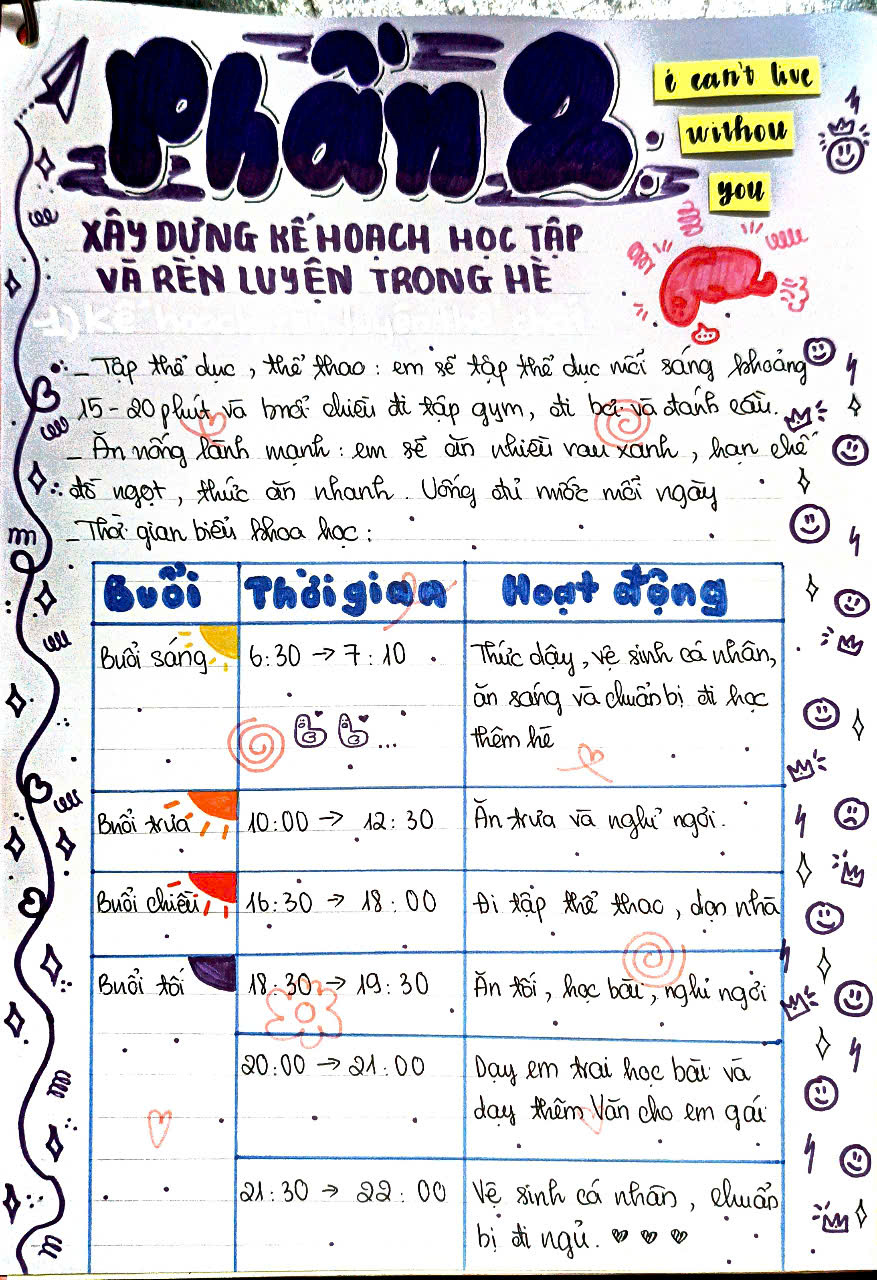 Phần 2
i can't live
withou
you
XÂY DỰNG KẾ HOẠCH HỌC TẬP
VÀ RÈN LUYỆN TRONG HÈ
- Tập thể dục, thể thao: em sẽ tập thể dục mỗi sáng khoảng
15-20 phút và buổi chiều đi tập gym, đi bơi và đánh cầu.
- Ăn uống lành mạnh: em sẽ ăn nhiều rau xanh, hạn chế
đồ ngọt, thức ăn nhanh. Uống đủ nước mỗi ngày
- Thời gian biểu khoa học:
Buổi Thời gian Hoạt động
Buổi sáng 6:30 → 7:10 Thức dậy, vệ sinh cá nhân,
ăn sáng và chuẩn bị đi học
thêm hè
Buổi trưa 10:00 → 12:30 Ăn trưa và nghỉ ngơi.
Buổi chiều 16:30 → 18:00 Đi tập thể thao, dọn nhà
Buổi tối 18:30 → 19:30 Ăn tối, học bài, nghỉ ngơi
20:00 → 21:00 Dạy em trai học bài và
dạy thêm Văn cho em gái
21:30 → 22:00 Vệ sinh cá nhân, chuẩn
bị đi ngủ.